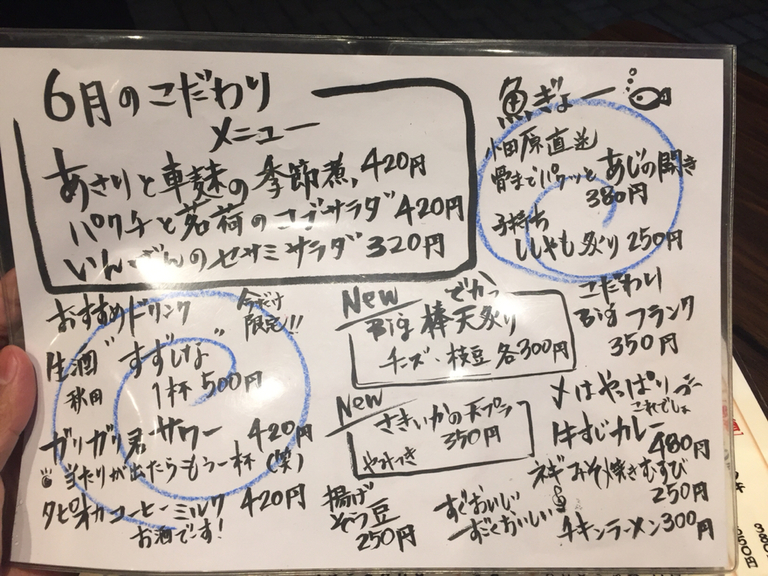 6月のこだわり
メニュー
あさりと車麩の季節煮 420円
パクチと茗荷のコブサラダ 420円
いんげんのセサミサラダ 320円
魚ぎょー
小田原直送
骨までパクッと あじの開き
380円
子持ち
ししゃも炙り 250円
おすすめドリンク
今だけ
限定!!!
生酒 "すずしな"
秋田 1杯 500円
ガリガリ君サワー 420円
当たりが出たらもう一杯(笑)
タピオカコーヒーミルク 420円
お酒です!
New でかっ
Big 棒天炙り
チーズ・枝豆 各300円
New
さきいかの天プラ
やみつき 350円
揚げ
そら豆
250円
こだわり
Big フランク
350円
〆はやっぱり
これでしょ
牛すじカレー
480円
ネギみそ焼きむすび
250円
すぐおいしい
すごくおいしい
チキンラーメン 300円